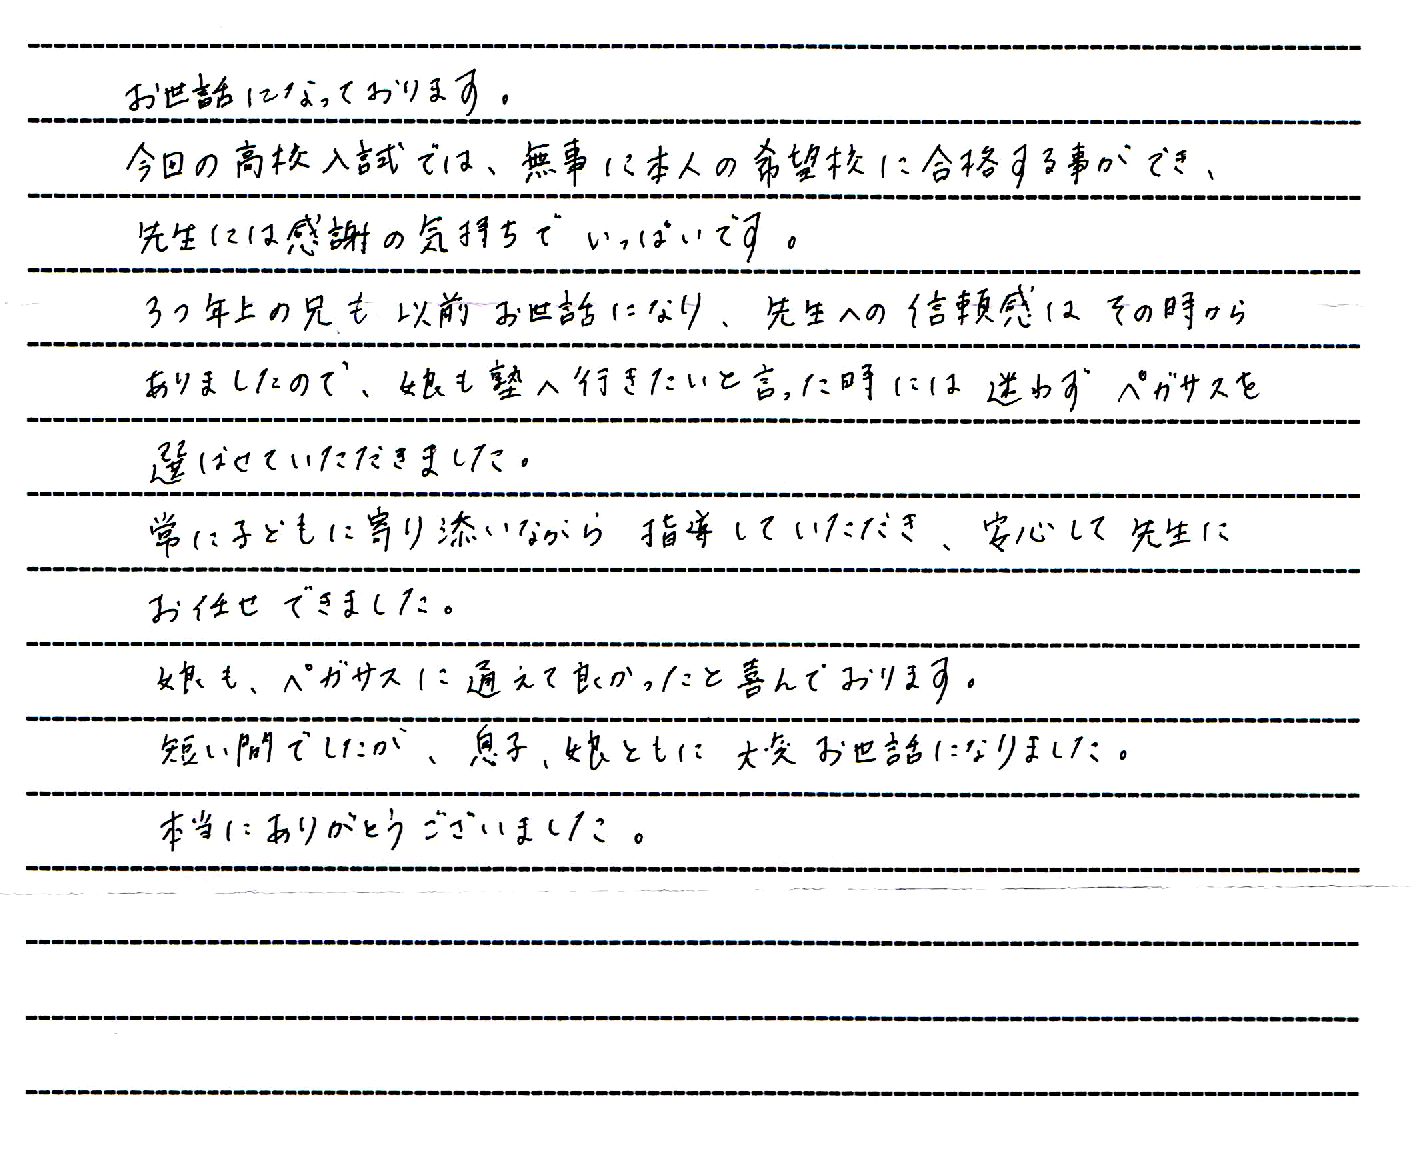 お世話になっております。
今回の高校入試では、無事に本人の希望校に合格する事ができ、
先生には感謝の気持ちでいっぱいです。
3つ年上の兄も以前お世話になり、先生への信頼感はその時から
ありましたので、娘も塾へ行きたいと言った時には迷わずペガサスを
選ばせていただきました。
常に子どもに寄り添いながら指導していただき、安心して先生に
お任せできました。
娘も、ペガサスに通えて良かったと喜んでおります。
短い間でしたが、息子、娘ともに大変お世話になりました。
本当にありがとうございました。